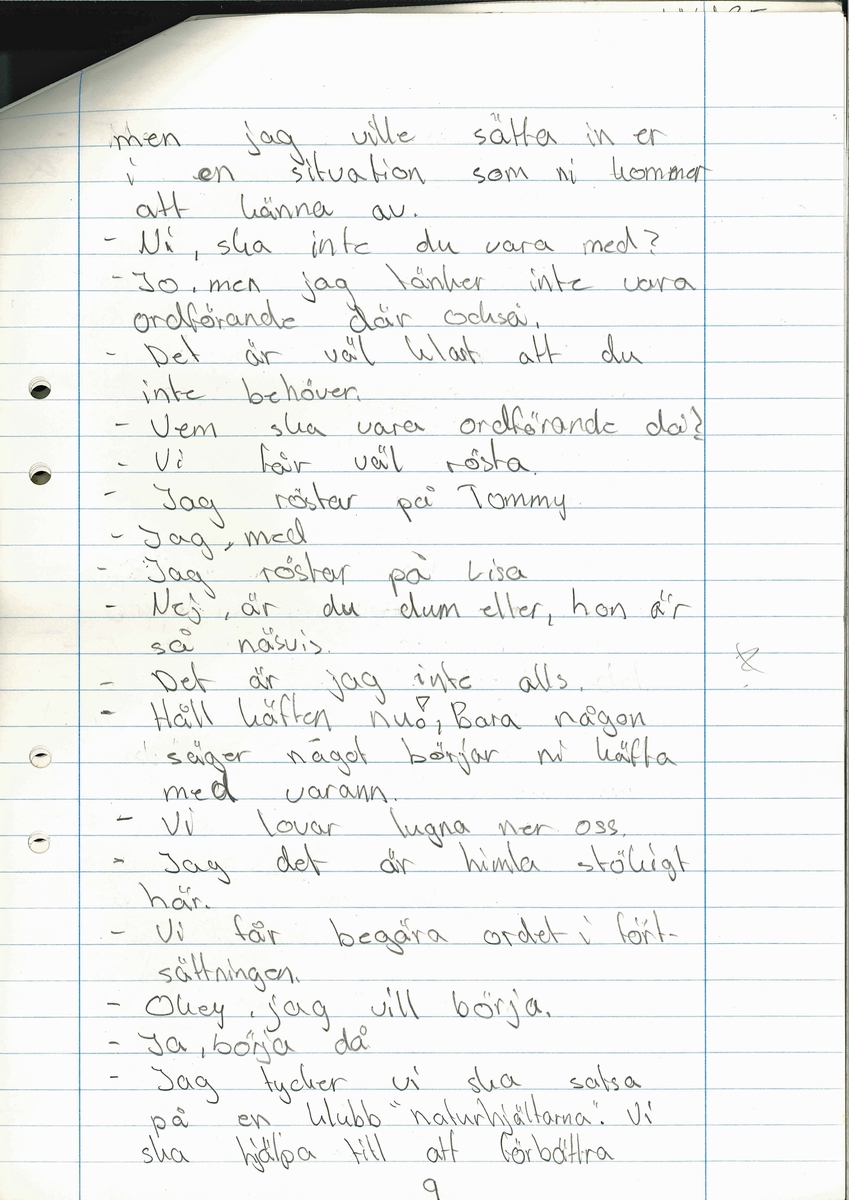 men jag ville sätta in er
i en situation som ni kommer
att känna av.
- Ni, ska inte du vara med?
- Jo, men jag tänker inte vara
ordförande där också.
- Det är väl klart att du
inte behöver.
- Vem ska vara ordförande då?
- Vi får väl rösta.
- Jag röstar på Tommy
- Jag, med
- Jag röstar på Lisa
- Nej, är du dum eller, hon är
så näsvis.
- Det är jag inte alls.
- Håll käften nu!, Bara någon
säger något börjar ni käfta
med varann.
- Vi lovar lugna ner oss.
- Jag det är himla stökigt
här.
- Vi får begära ordet i fort-
sättningen.
- Okey, jag vill börja.
- Ja, börja då
- Jag tycker vi ska satsa
på en klubb "naturhjältarna". Vi
ska hjälpa till att förbättra
9